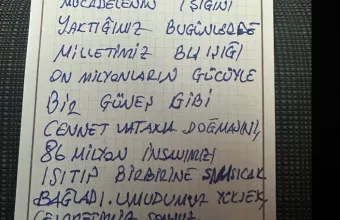 MÜCADELENİN IŞIĞINI
YAKTIĞIMIZ BUGÜNLERDE
MİLLETİMİZ BU IŞIĞI
ON MİLYONLARIN GÜCÜYLE
BİR GÜNEŞ GİBİ
CENNET VATANA DOĞMASINI,
86 MİLYON İNSANIMIZI
ISITIP BİRBİRİNE SIMSICAK
BAĞLADI. UMUDUMUZ YÜKSEK,